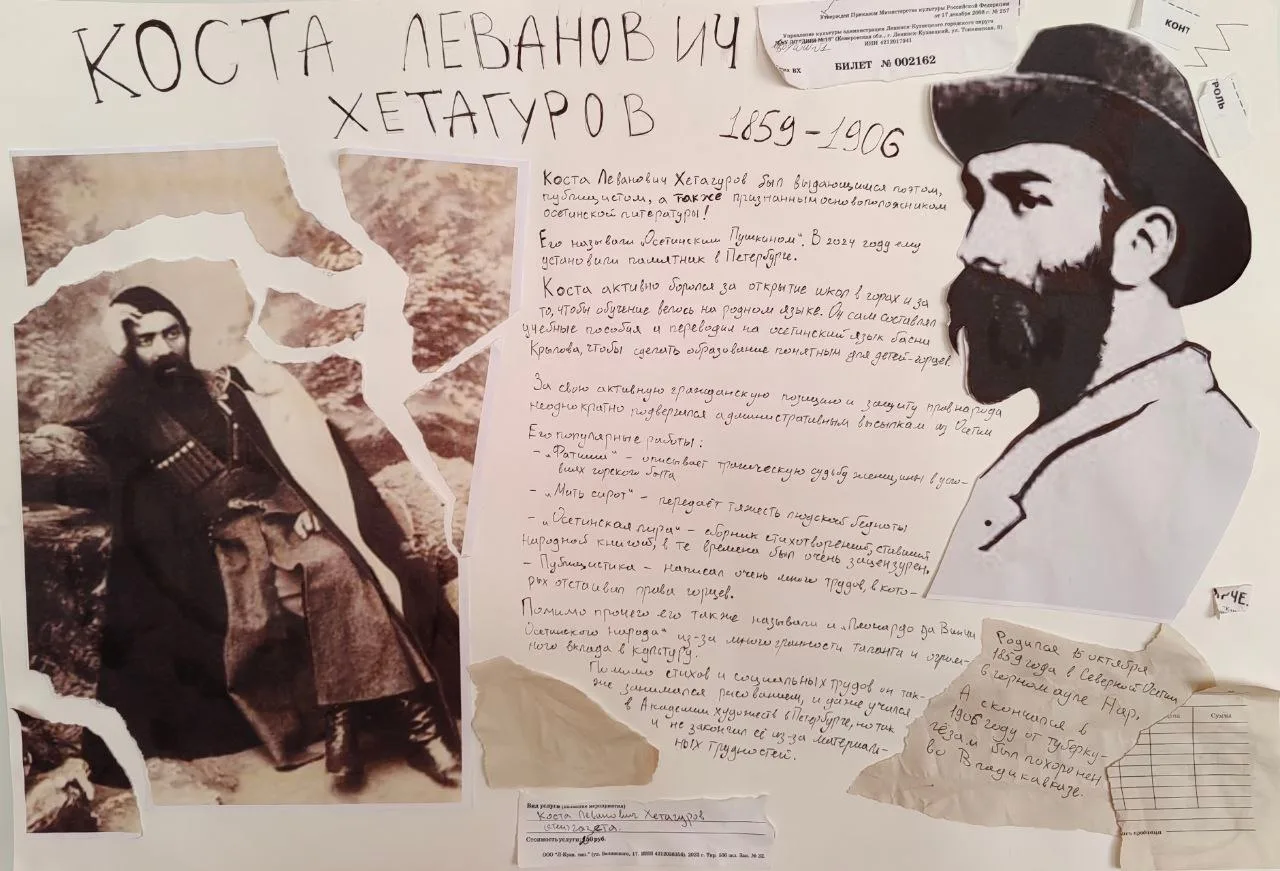 КОСТА ЛЕВАНОВИЧ
ХЕТАГУРОВ 1859-1906
Утвержден Приказом Министерства культуры Российской Федерации
от 17 декабря 2008 г. № 257
Управление культуры администрации Ленинск-Кузнецкого городского округа
(Кемеровская обл., г. Ленинск-Кузнецкий, ул. Топкинская, 8)
ИНН 4212017941
ВХ БИЛЕТ № 002162
КОНТ
РОЛЬ
Коста Леванович Хетагуров был выдающимся поэтом,
публицистом, а также признанным основоположником
осетинской литературы!
Его называли „Осетинским Пушкином". В 2024 году ему
установили памятник в Петербурге.
Коста активно боролся за открытие школ в горах и за
то, чтобы обучение велось на родном языке. Он сам составлял
учебные пособия и переводил на осетинский язык басни
Крылова, чтобы сделать образование понятным для детей-горцев.
За свою активную гражданскую позицию и защиту прав народа
неоднократно подвергался административным высылкам из Осетии
Его популярные работы:
- „Фатима" - описывает трагическую судьбу женщины в усло-
виях горского быта
- „Мать сирот" - передаёт тяжесть людской бедноты
- „Осетинская лира" - сборник стихотворений, ставший
народной книгой, в те времена был очень зацензурен.
- Публицистика - написал очень много трудов, в кото-
рых отстаивал права горцев.
Помимо прочего его также называли и „Леонардо да Винчи
Осетинского народа" из-за многогранности таланта и огром-
ного вклада в культуру.
Помимо стихов и социальных трудов он так-
же занимался рисованием, и даже учился
в Академии художеств в Петербурге, но так
и не закончил её из-за материаль-
ных трудностей.
Родился 15 октября
1859 года в Северной Осетии
в горном ауле Нар.
А скончался в
1906 году от туберку-
лёза, был похоронен
во Владикавказе.
Сумма
Вид услуги (название мероприятия)
Коста Леванович Хетагуров
стенгазета.
Стоимость услуги руб.